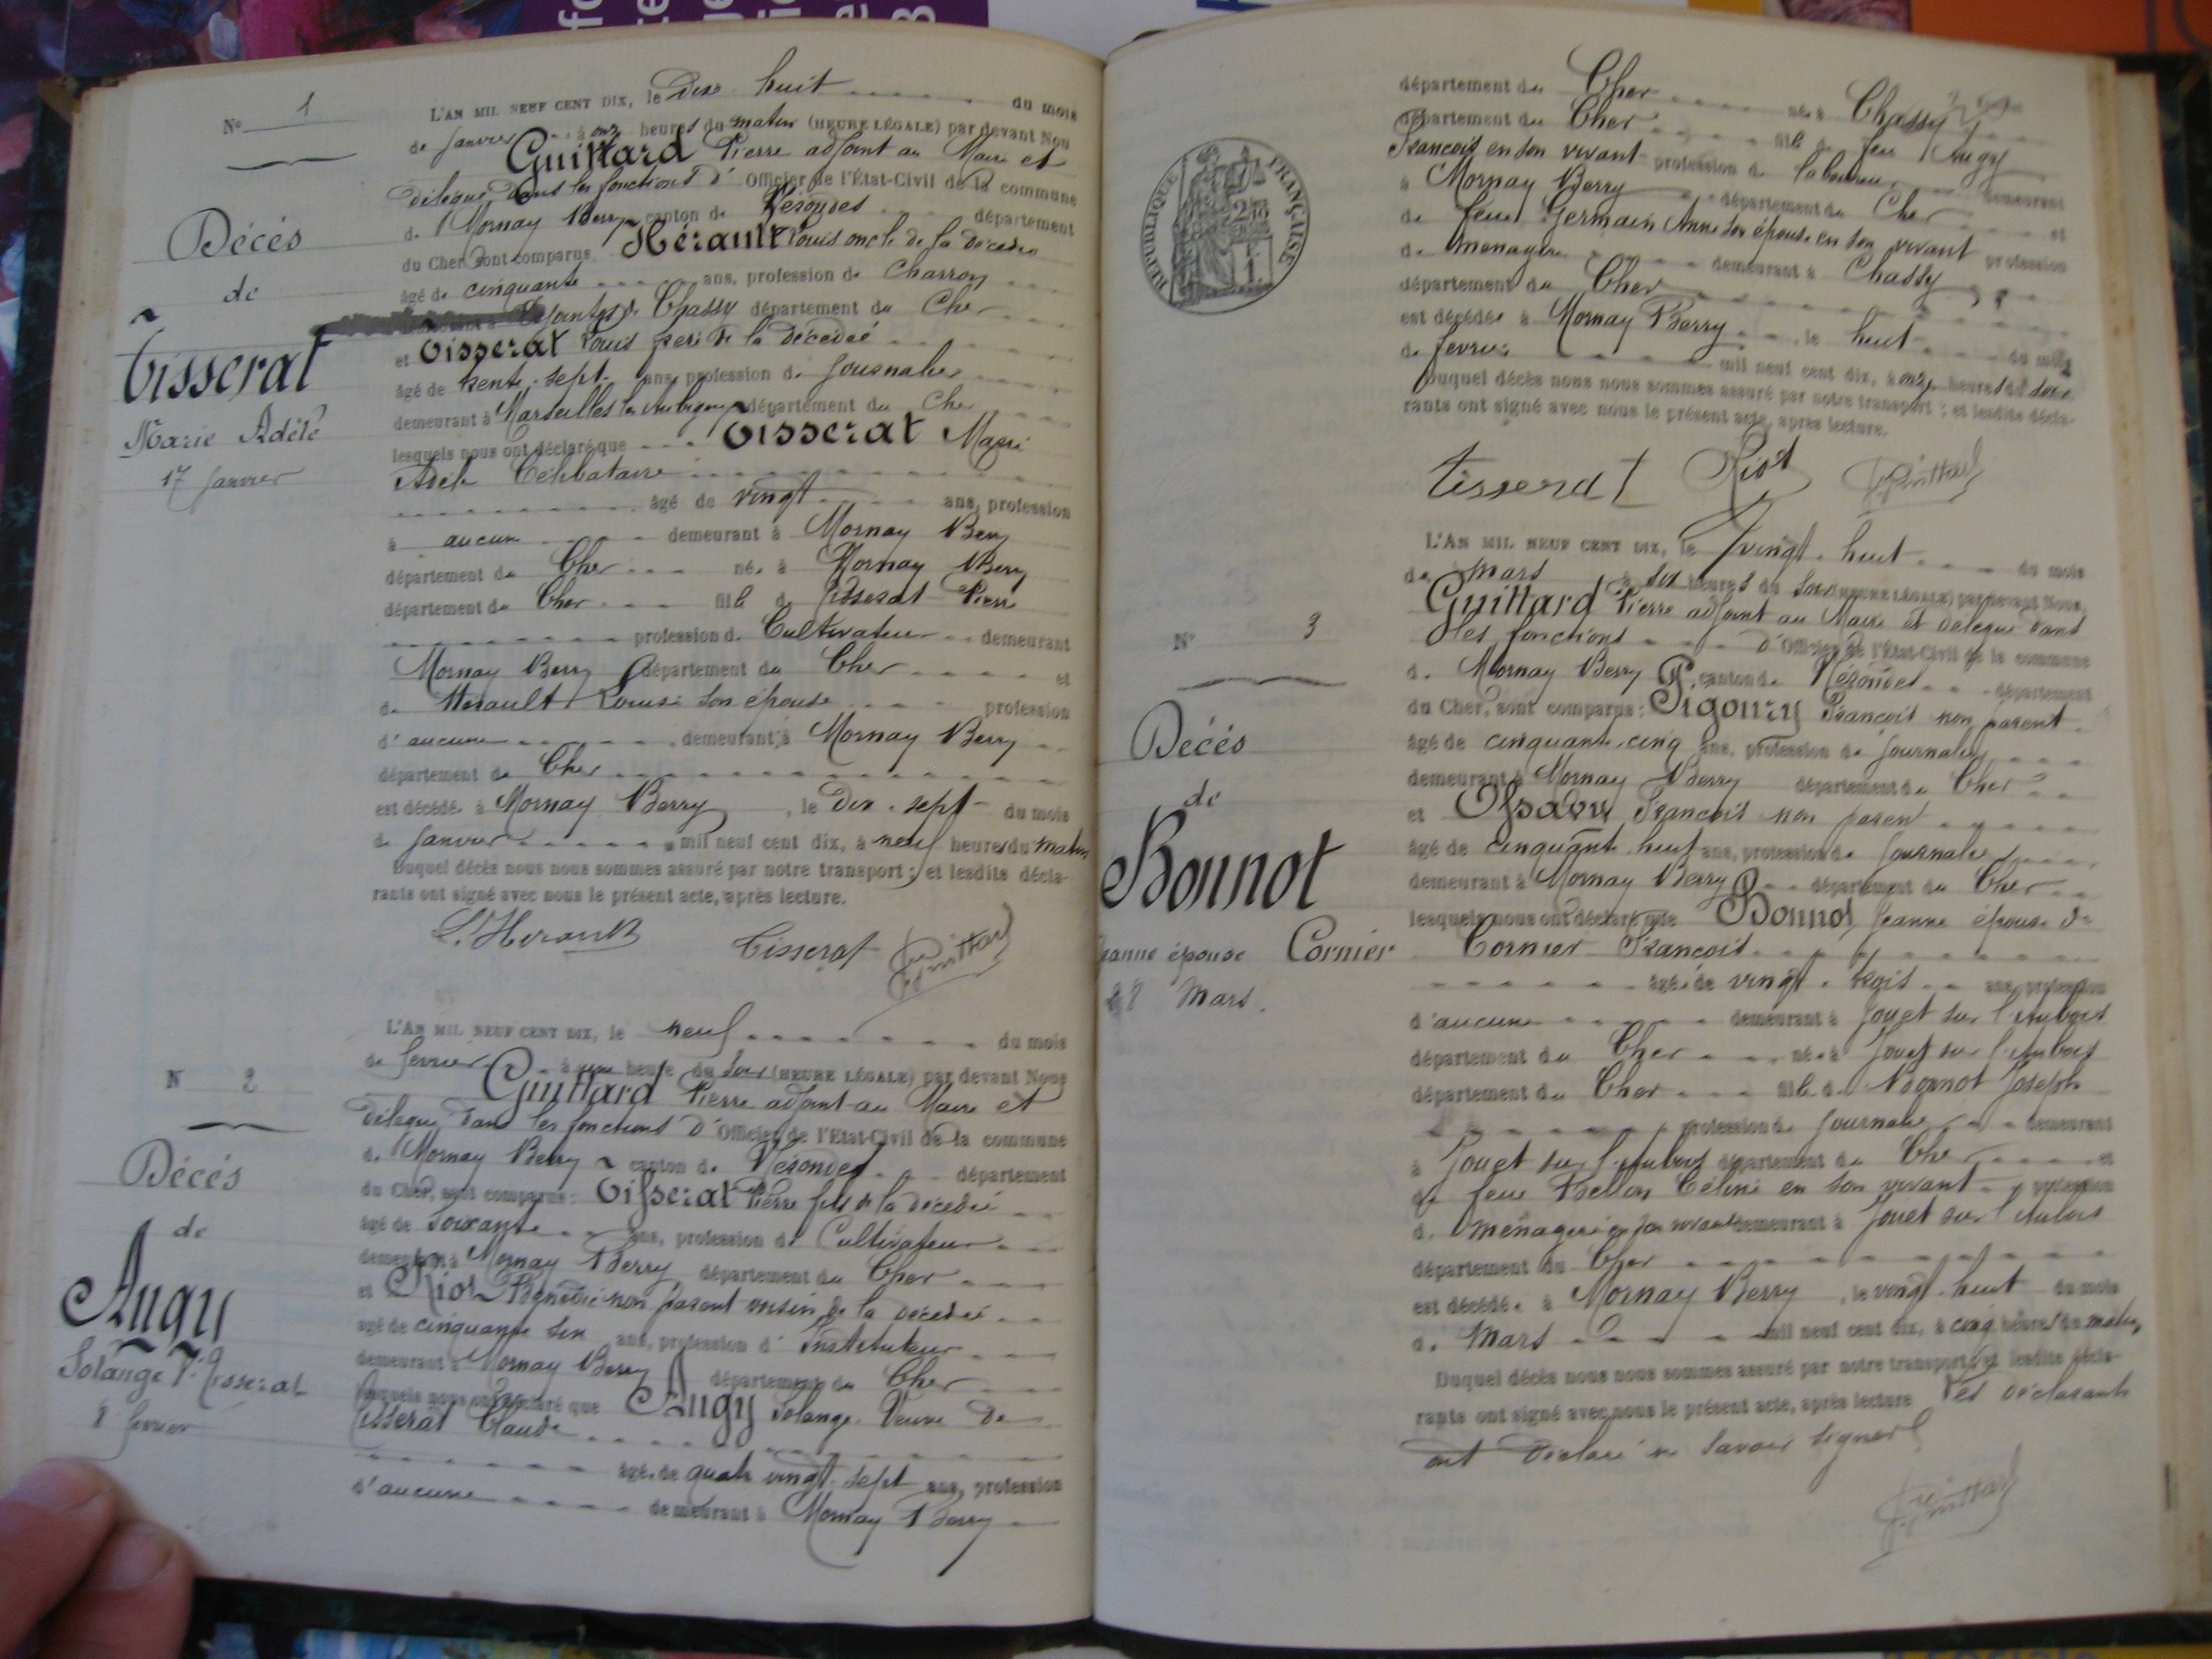 N° 1
Décès
de
Tisserat
Marie Adèle
17 Janvier
L'AN MIL NEUF CENT DIX, le Dix huit du mois
de Janvier à onze heures du matin (HEURE LÉGALE) par devant Nou
Guittard Pierre adjoint au Maire et
délégué dans les fonctions d' Officier de l'État-Civil de la commune
de Mornay Berry canton de Nérondes département
du Cher sont comparus Hérault Louis oncle de la décédée
âgé de cinquante ans, profession de Charron
demeurant à Chassy département du Cher
et Tisserat Louis père de la décédée
âgé de trente sept ans, profession de Journalier
demeurant à Marseilles les Aubigny département du Cher
lesquels nous ont déclaré que Tisserat Marie
Adèle Célibataire
âgé de vingt ans, profession
à aucune demeurant à Mornay Berry
département du Cher née à Mornay Berry
département du Cher fille de Tisserat Pierre
profession de Cultivateur demeurant
Mornay Berry département du Cher et
de Hérault Louise son épouse profession
d'aucune demeurant à Mornay Berry
département du Cher
est décédée à Mornay Berry, le Dix sept du mois
de Janvier mil neuf cent dix, à neuf heures du matin
Duquel décès nous nous sommes assuré par notre transport ; et lesdits décla-
rants ont signé avec nous le présent acte, après lecture.
L. Herault Tisserat Guittard
N 2
Décès
de
Augy
Solange Ve Tisserat
8 février
L'AN MIL NEUF CENT DIX, le neuf du mois
de février à une heure du soir (HEURE LÉGALE) par devant Nous
Guittard Pierre adjoint au Maire et
délégué dans les fonctions d' Officier de l'État-Civil de la commune
de Mornay Berry canton de Nérondes département
du Cher, sont comparus : Tisserat Pierre fils de la décédée
âgé de soixante ans, profession de Cultivateur
demeurant à Mornay Berry département du Cher
et Riot non parent voisin de la décédée
âgé de cinquante six ans, profession d' Instituteur
demeurant à Mornay Berry département du Cher
lesquels nous ont déclaré que Augy Solange Veuve de
Tisserat Claude
âgée de quatre vingt sept ans, profession
d'aucune demeurant à Mornay Berry
RÉPUBLIQUE FRANÇAISE
département du Cher née à Chassy
département du Cher fille de feu Augy
François en son vivant profession de laboureur demeurant
à Mornay Berry département du Cher et
de feue Germain Anne son épouse en son vivant profession
de ménagère demeurant à Chassy
département du Cher
est décédée à Mornay Berry le huit du mois
de février mil neuf cent dix, à onze heures du soir
Duquel décès nous nous sommes assuré par notre transport ; et lesdits décla-
rants ont signé avec nous le présent acte, après lecture.
Tisserat Riot Guittard
N° 3
Décès
de
Bonnot
Jeanne épouse Cornier
28 Mars.
L'AN MIL NEUF CENT DIX, le vingt huit du mois
de Mars à six heures du soir (HEURE LÉGALE) par devant Nous,
Guittard Pierre adjoint au Maire et délégué dans
les fonctions d'Officier de l'État-Civil de la commune
de Mornay Berry canton de Nérondes département
du Cher, sont comparus : Pigoury François non parent
âgé de cinquante cinq ans, profession de Journalier
demeurant à Mornay Berry département du Cher
et François non parent
âgé de cinquante neuf ans, profession de Journalier
demeurant à Mornay Berry département du Cher
lesquels nous ont déclaré que Bonnot Jeanne épouse de
Cornier François
âgée de vingt trois ans, profession
d'aucune demeurant à Jouet sur l'Aubois
département du Cher née à Jouet sur l'Aubois
département du Cher fille de Bonnot Joseph
profession de Journalier demeurant
à Jouet sur l'Aubois département du Cher et
de feue Céline en son vivant profession
de ménagère en son vivant demeurant à Jouet sur l'Aubois
département du Cher
est décédée à Mornay Berry, le vingt huit du mois
de Mars mil neuf cent dix, à cinq heures du matin
Duquel décès nous nous sommes assuré par notre transport ; et lesdits décla-
rants ont signé avec nous le présent acte, après lecture Les déclarants
ont déclaré ne savoir signer
Guittard